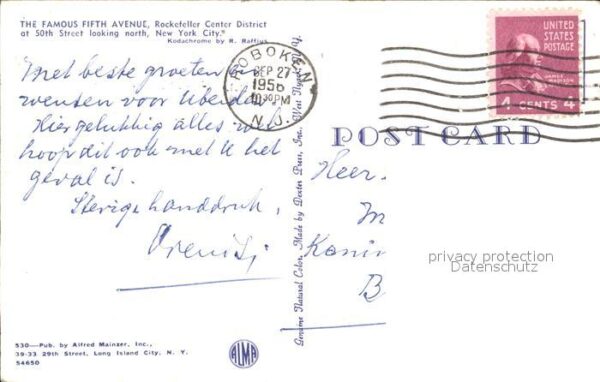 THE FAMOUS FIFTH AVENUE, Rockefeller Center District
at 50th Street looking north, New York City.
Kodachrome by R. Raffius
HOBOKEN
SEP 27
1956
10:30 PM
N. J.
UNITED
STATES
POSTAGE
JAMES MADISON
4 CENTS 4
POST CARD
Met beste groeten en
wensen voor Uw beider
Hier gelukkig alles wel
hoop dit ook met U het
geval is.
Stevige handdruk,
Heer.
M
Konin
B
privacy protection
Datenschutz
Genuine Natural Color, Made by Dexter Press, Inc., West Nyack, N. Y.
530—Pub. by Alfred Mainzer, Inc.,
39-33 29th Street, Long Island City, N. Y.
54650
ALMA